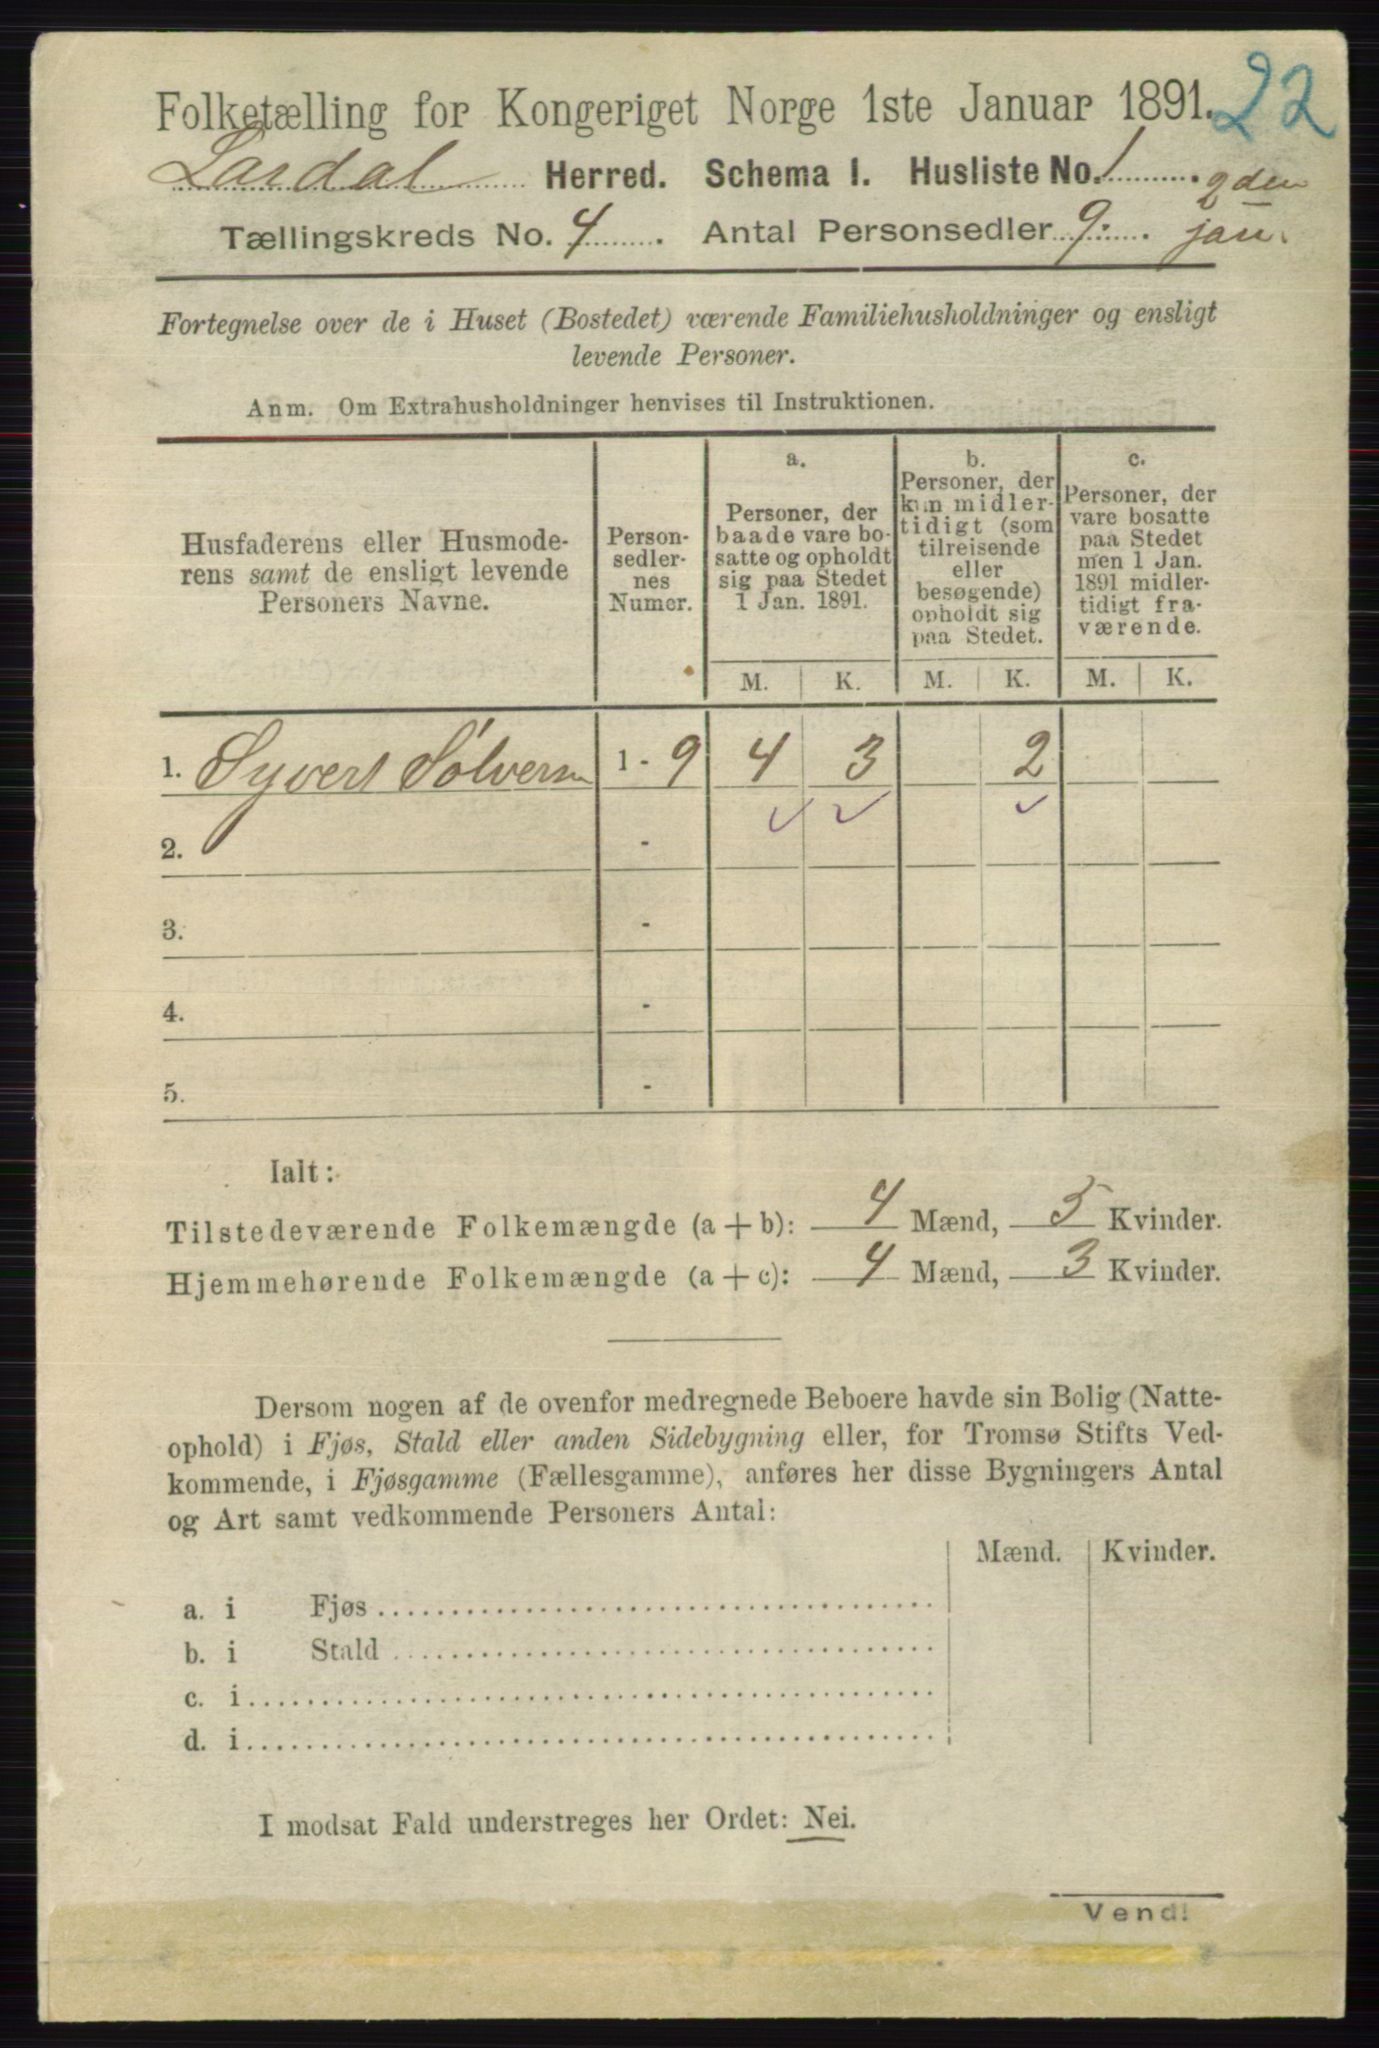 22
Folketælling for Kongeriget Norge 1ste Januar 1891.
Lardal Herred. Schema I. Husliste No. 1. 2den
Tællingskreds No. 4. Antal Personsedler 9. jan.
Fortegnelse over de i Huset (Bostedet) værende Familiehusholdninger og ensligt
levende Personer.
Anm. Om Extrahusholdninger henvises til Instruktionen.
Husfaderens eller Husmode-
rens samt de ensligt levende
Personers Navne.
Person-
sedler-
nes
Numer.
a.
Personer, der
baade vare bo-
satte og opholdt
sig paa Stedet
1 Jan. 1891.
b.
Personer, der
kun midler-
tidigt (som
tilreisende
eller
besøgende)
opholdt sig
paa Stedet.
c.
Personer, der
vare bosatte
paa Stedet
men 1 Jan.
1891 midler-
tidigt fra-
værende.
M. K. M. K. M. K.
1. Syvert Sølversen 1 - 9 4 3 2
2. -
3. -
4. -
5. -
Ialt:
Tilstedeværende Folkemængde (a + b): 4 Mænd, 5 Kvinder.
Hjemmehørende Folkemængde (a + c): 4 Mænd, 3 Kvinder.
Dersom nogen af de ovenfor medregnede Beboere havde sin Bolig (Natte-
ophold) i Fjøs, Stald eller anden Sidebygning eller, for Tromsø Stifts Ved-
kommende, i Fjøsgamme (Fællesgamme), anføres her disse Bygningers Antal
og Art samt vedkommende Personers Antal:
Mænd. Kvinder.
a. i Fjøs
b. i Stald
c. i
d. i
I modsat Fald understreges her Ordet: Nei.
Vend!